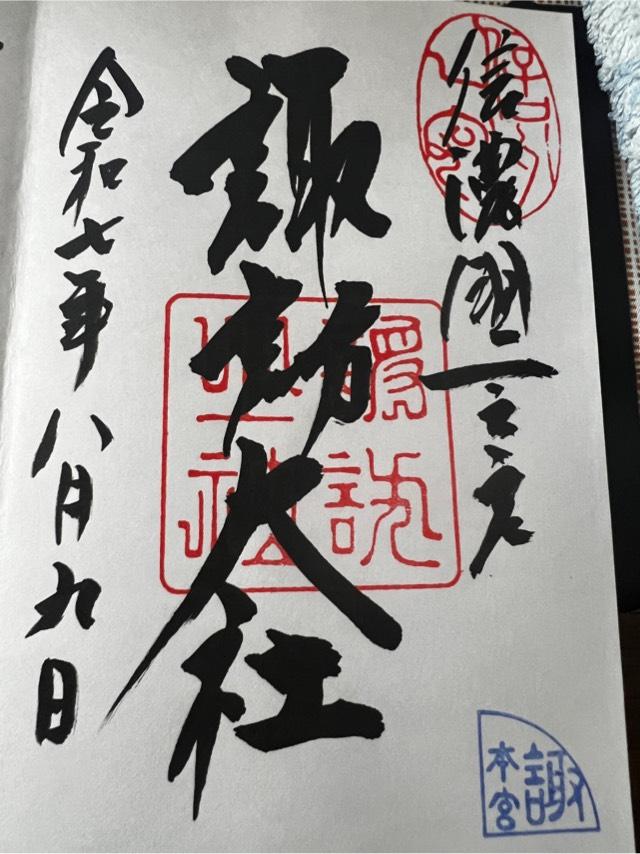 信濃國一之宮
諏訪大社
令和七年八月九日
諏
本宮